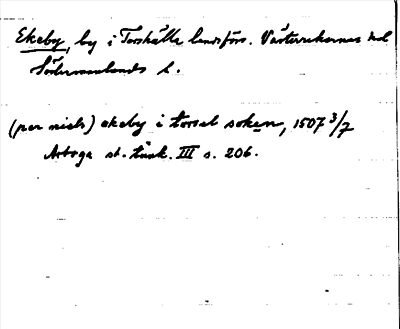 Ekeby, by i Torshälla landsförs. Västerrekarnes hd
Södermanlands l.
(per niels) ekeby i torsel soken, 1507 3/7
Arboga st. tänk. III s. 206.